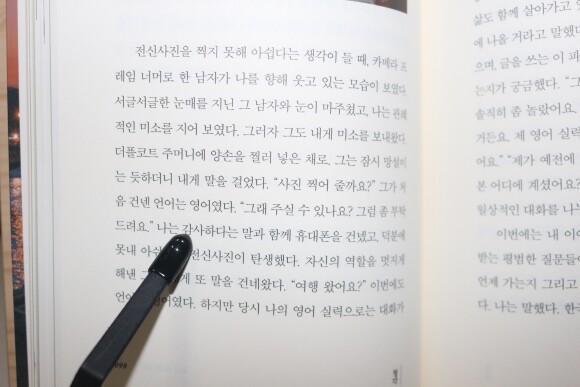 전신사진을 찍지 못해 아쉽다는 생각이 들 때, 카메라 프
레임 너머로 한 남자가 나를 향해 웃고 있는 모습이 보였다.
서글서글한 눈매를 지닌 그 남자와 눈이 마주쳤고, 나는 관례
적인 미소를 지어 보였다. 그러자 그도 내게 미소를 보내왔다.
더플코트 주머니에 양손을 찔러 넣은 채로, 그는 잠시 망설이
는 듯하더니 내게 말을 걸었다. “사진 찍어 줄까요?” 그가 처
음 건넨 언어는 영어였다. “그래 주실 수 있나요? 그럼 좀 부탁
드려요.” 나는 감사하다는 말과 함께 휴대폰을 건넸고, 덕분에
못내 전신사진이 탄생했다. 자신의 역할을 멋지게
해낸 또 말을 건네왔다. “여행 왔어요?” 이번에도
하지만 당시 나의 영어 실력으로는 대화가
삶도 함께 살아가고
에 나올 거라고 말했다
으며, 글을 쓰는 이
는지가 궁금했다.
솔직히 좀 놀랐어요.
거든요. 제 영어 실력
어요.” “제가 예전에
본 어디에 계셨어요?
일상적인 대화를 나누
이번에는 내 이야
받는 평범한 질문들
언제 가는지 그리고
다. 나는 말했다.